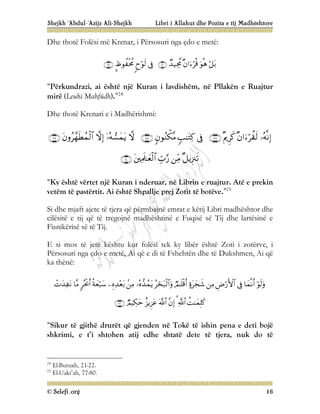 Shejkh 'Abdul-'Aziz Ali-Shejkh Libri i Allahut dhe Pozita e tij Madhështore
Dhe thotë Folësi më Krenar, i Përsosuri nga çdo e metë:
بَلْ هُوَ قُرْءَانٌ مَّجِيدٌ ﴿٢١﴾ فِى لَوْحٍ مَّحْفُوظٍ ﴿٢٢﴾
"Përkundrazi, ai është një Kuran i lavdishëm, në Pllakën e Ruajtur
mirë (Leuhi Mahfûdh)."24
Dhe thotë Krenari e i Madhërishmi:
إِنَّهُۥ لَقُرْءَانٌ كَرِيمٌ ﴿٧٧﴾ فِى كِتَـٰبٍ مَّكْنُونٍ ﴿٧٨﴾ لَّا يَمَسُّهُۥٓ إِلَّا ٱلْمُطَهَّرُونَ ﴿٧٩﴾
تَنزِيلٌ مِّن رَّبِّ ٱلْعَـٰلَمِينَ ﴿٨٠﴾
"Ky është vërtet një Kuran i nderuar, në Librin e ruajtur. Atë e prekin
vetëm të pastërtit. Ai është Shpallje prej Zotit të botëve."25
Si dhe mjaft ajete të tjera që përmbajnë emrat e këtij Libri madhështor dhe
cilësitë e tij që të tregojnë madhështinë e Fuqisë së Tij dhe lartësinë e
Fisnikërisë së të Tij.
E si mos të jetë kështu kur folësi tek ky libër është Zoti i zotërve, i
Përsosuri nga çdo e metë, Ai që e di të Fshehtën dhe të Dukshmen, Ai që
ka thënë:
وَلَوْ أَنَّمَا فِى ٱلْأَرْضِ مِن شَجَرَةٍ أَقْلَـٰمٌ وَٱلْبَحْرُ يَمُدُّهُۥ مِنۢ بَعْدِهِۦ سَبْعَةُ أَبْحُرٍ مَّا نَفِدَتْ
كَلِمَـٰتُ ٱللَّهِ ۗ إِنَّ ٱللَّهَ عَزِيزٌ حَكِيمٌ ﴿٢٧﴾
"Sikur të gjithë drurët që gjenden në Tokë të ishin pena e deti bojë
shkrimi, e t'i shtohen atij edhe shtatë dete të tjera, nuk do të
24 El-Buruxh, 21-22.
25 El-Uaki'ah, 77-80.
© Selefi.org 16